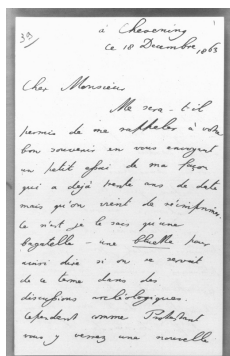 39
1
à Chevening
ce 18 Decembre 1863
Cher Monsieur
Me sera-t-il
permis de me rappeler à votre
bon souvenir en vous envoyant
un petit essai de ma façon
qui a dejà trente ans de date
mais qu'on vient de réimprimer.
Ce n'est je le sais qu'une
bagatelle - une bluette pour
ainsi dire si on se servait
de ce terme dans des
discussions archéologiques.
Cependant comme Protestant
vous y verrez une nouvelle